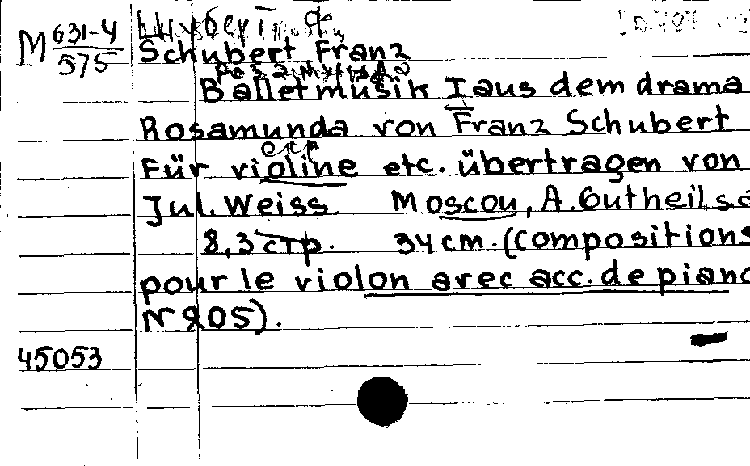 M 631-4
575
Шуберт, Ф.
Schubert Franz
Розамунда
Balletmusik I aus dem drama
Rosamunda von Franz Schubert
Für violine etc. übertragen von
Jul. Weiss Moscou, A. Gutheil
8,3 стр. 34 cm. (Compositions
pour le violon avec acc. de piano
N 205).
45053